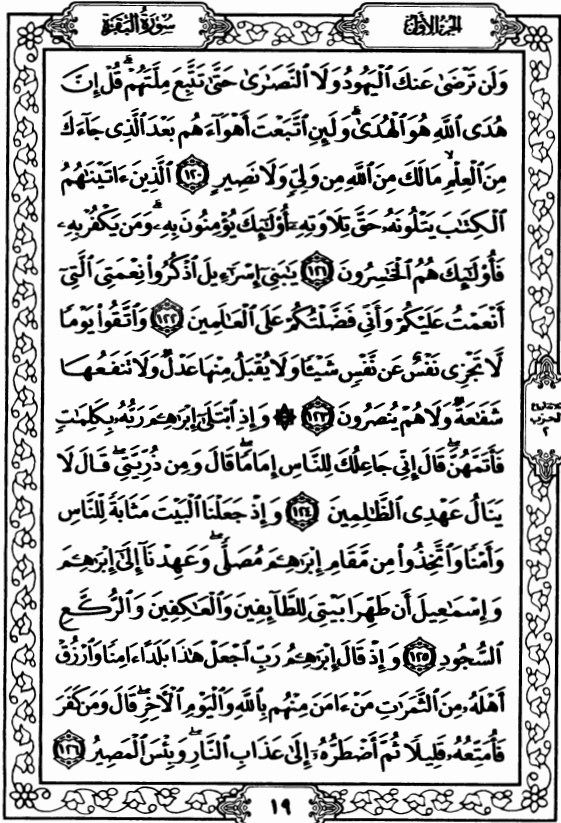 سُورَةُ البَقَرَةِ الجُزْءُ الأَوَّلُ
وَلَن تَرْضَىٰ عَنكَ ٱلْيَهُودُ وَلَا ٱلنَّصَٰرَىٰ حَتَّىٰ تَتَّبِعَ مِلَّتَهُمْ ۗ قُلْ إِنَّ
هُدَى ٱللَّهِ هُوَ ٱلْهُدَىٰ ۗ وَلَئِنِ ٱتَّبَعْتَ أَهْوَآءَهُم بَعْدَ ٱلَّذِى جَآءَكَ
مِنَ ٱلْعِلْمِ ۙ مَا لَكَ مِنَ ٱللَّهِ مِن وَلِىٍّ وَلَا نَصِيرٍ ١٢٠ ٱلَّذِينَ ءَاتَيْنَٰهُمُ
ٱلْكِتَٰبَ يَتْلُونَهُۥ حَقَّ تِلَاوَتِهِۦٓ أُو۟لَٰٓئِكَ يُؤْمِنُونَ بِهِۦ ۗ وَمَن يَكْفُرْ بِهِۦ
فَأُو۟لَٰٓئِكَ هُمُ ٱلْخَٰسِرُونَ ١٢١ يَٰبَنِىٓ إِسْرَٰٓءِيلَ ٱذْكُرُوا۟ نِعْمَتِىَ ٱلَّتِىٓ
أَنْعَمْتُ عَلَيْكُمْ وَأَنِّى فَضَّلْتُكُمْ عَلَى ٱلْعَٰلَمِينَ ١٢٢ وَٱتَّقُوا۟ يَوْمًا
لَّا تَجْزِى نَفْسٌ عَن نَّفْسٍ شَيْـًٔا وَلَا يُقْبَلُ مِنْهَا عَدْلٌ وَلَا تَنفَعُهَا
شَفَٰعَةٌ وَلَا هُمْ يُنصَرُونَ ١٢٣ ۞ وَإِذِ ٱبْتَلَىٰٓ إِبْرَٰهِـۧمَ رَبُّهُۥ بِكَلِمَٰتٍ
فَأَتَمَّهُنَّ ۖ قَالَ إِنِّى جَاعِلُكَ لِلنَّاسِ إِمَامًا ۖ قَالَ وَمِن ذُرِّيَّتِى ۖ قَالَ لَا
يَنَالُ عَهْدِى ٱلظَّٰلِمِينَ ١٢٤ وَإِذْ جَعَلْنَا ٱلْبَيْتَ مَثَابَةً لِّلنَّاسِ
وَأَمْنًا وَٱتَّخِذُوا۟ مِن مَّقَامِ إِبْرَٰهِـۧمَ مُصَلًّى ۖ وَعَهِدْنَآ إِلَىٰٓ إِبْرَٰهِـۧمَ
وَإِسْمَٰعِيلَ أَن طَهِّرَا بَيْتِىَ لِلطَّآئِفِينَ وَٱلْعَٰكِفِينَ وَٱلرُّكَّعِ
ٱلسُّجُودِ ١٢٥ وَإِذْ قَالَ إِبْرَٰهِـۧمُ رَبِّ ٱجْعَلْ هَٰذَا بَلَدًا ءَامِنًا وَٱرْزُقْ
أَهْلَهُۥ مِنَ ٱلثَّمَرَٰتِ مَنْ ءَامَنَ مِنْهُم بِٱللَّهِ وَٱلْيَوْمِ ٱلْـَٔاخِرِ ۖ قَالَ وَمَن كَفَرَ
فَأُمَتِّعُهُۥ قَلِيلًا ثُمَّ أَضْطَرُّهُۥٓ إِلَىٰ عَذَابِ ٱلنَّارِ ۖ وَبِئْسَ ٱلْمَصِيرُ ١٢٦
الحزب
٢
١٩